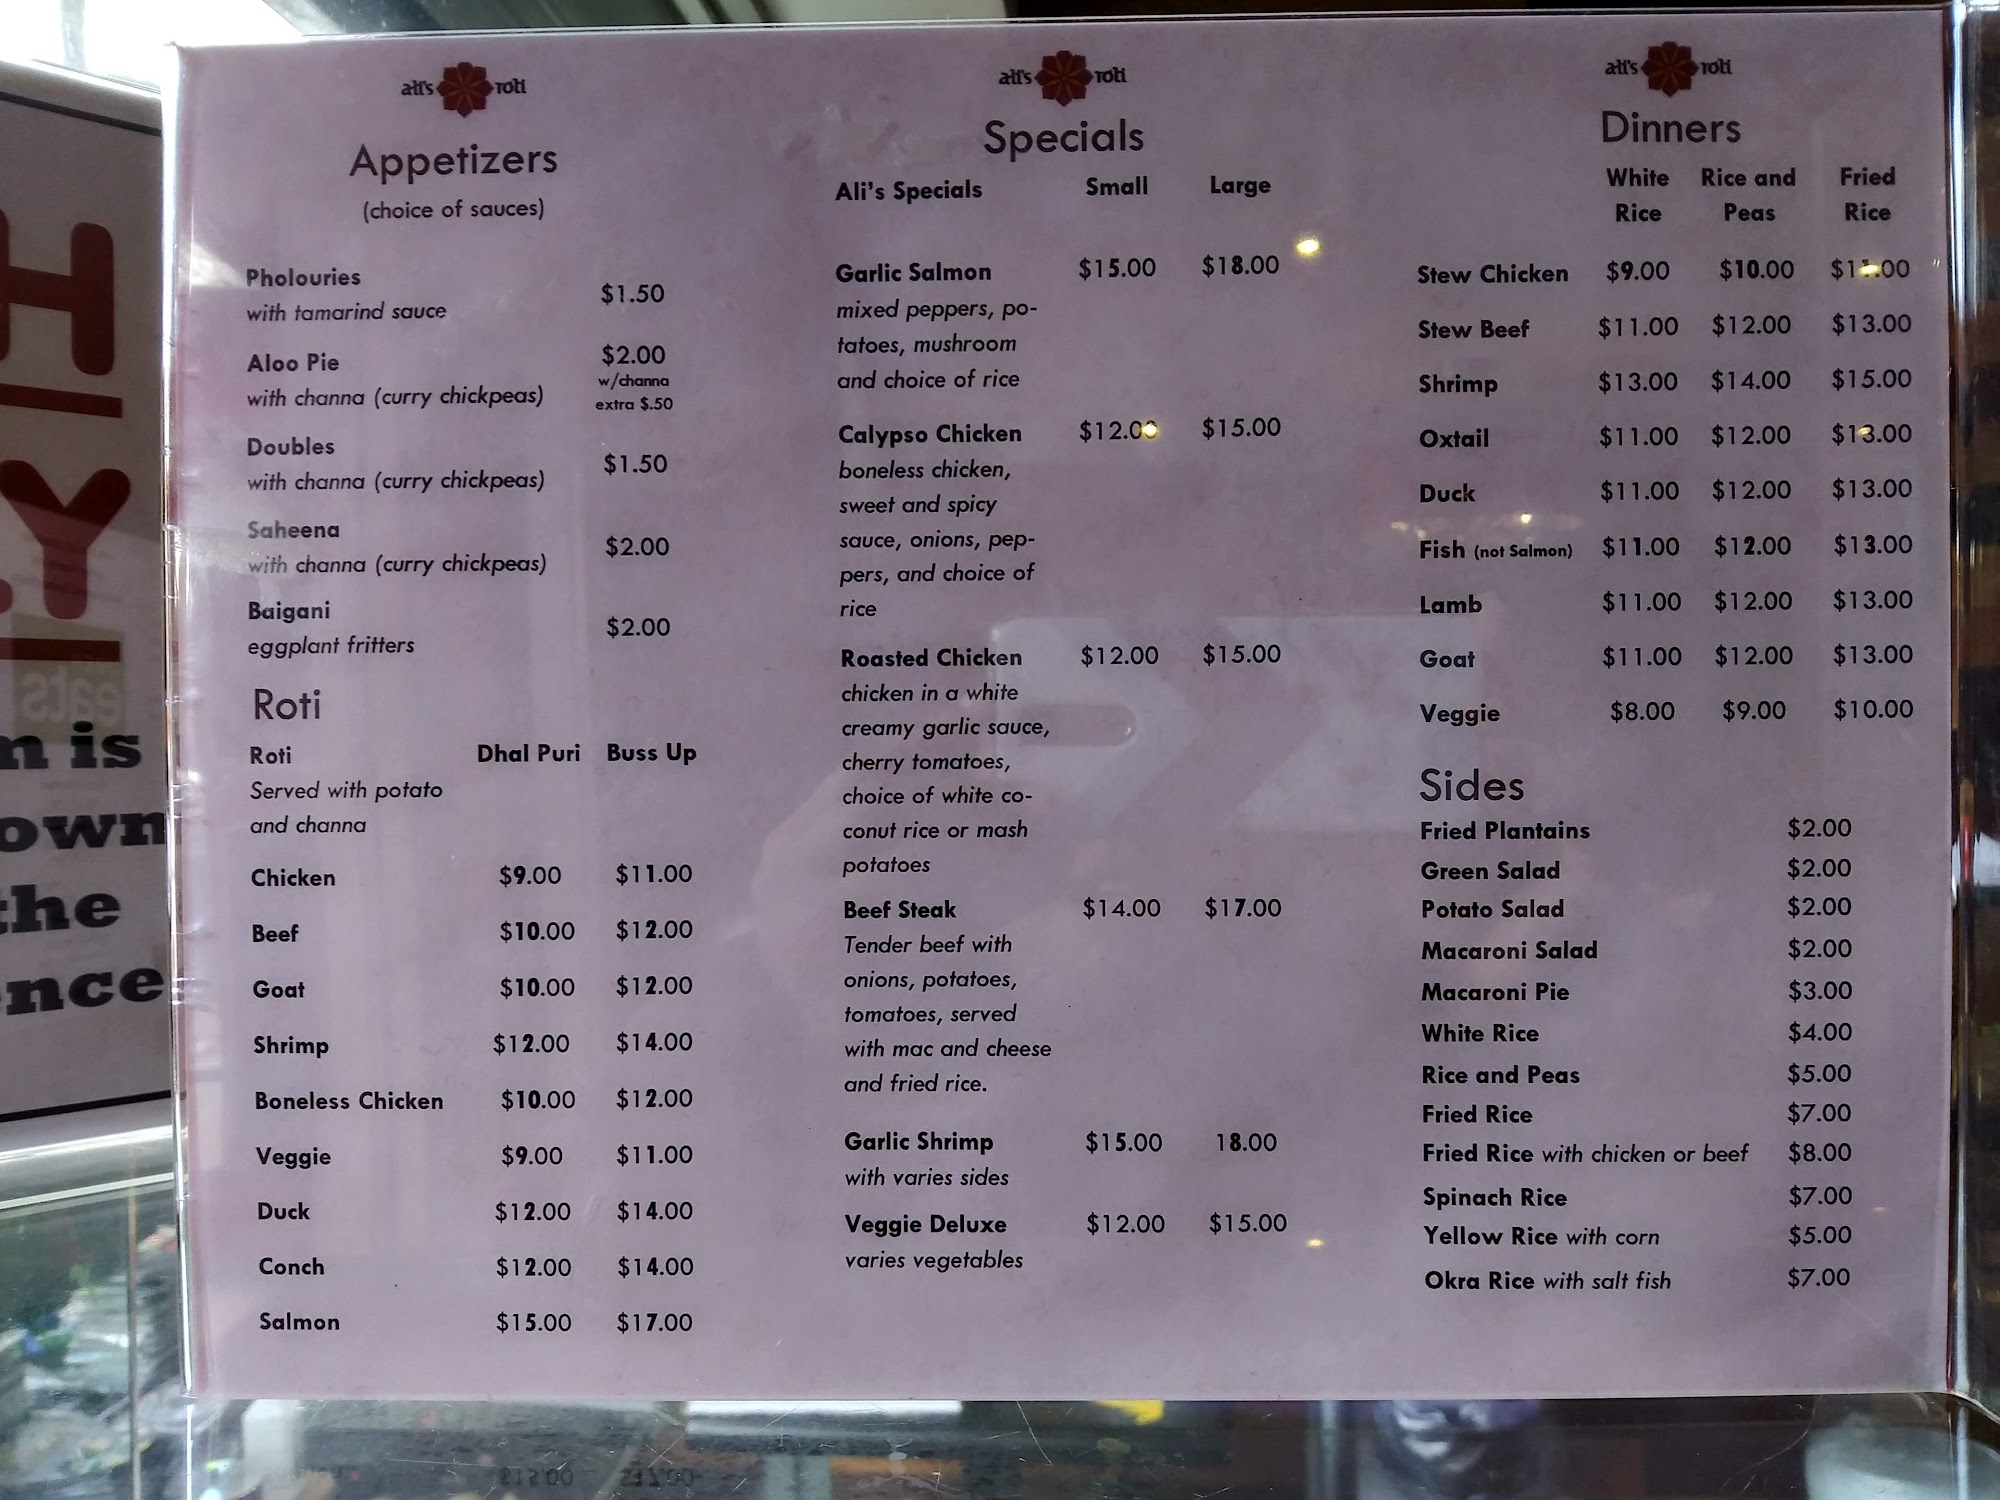 ali's roti
Appetizers
(choice of sauces)
Pholouries $1.50
with tamarind sauce
Aloo Pie $2.00
with channa (curry chickpeas) w/channa
extra $.50
Doubles $1.50
with channa (curry chickpeas)
Saheena $2.00
with channa (curry chickpeas)
Baigani $2.00
eggplant fritters
Roti
Roti Dhal Puri Buss Up
Served with potato
and channa
Chicken $9.00 $11.00
Beef $10.00 $12.00
Goat $10.00 $12.00
Shrimp $12.00 $14.00
Boneless Chicken $10.00 $12.00
Veggie $9.00 $11.00
Duck $12.00 $14.00
Conch $12.00 $14.00
Salmon $15.00 $17.00
ali's roti
Specials
Ali's Specials Small Large
Garlic Salmon $15.00 $18.00
mixed peppers, po-
tatoes, mushroom
and choice of rice
Calypso Chicken $12.00 $15.00
boneless chicken,
sweet and spicy
sauce, onions, pep-
pers, and choice of
rice
Roasted Chicken $12.00 $15.00
chicken in a white
creamy garlic sauce,
cherry tomatoes,
choice of white co-
conut rice or mash
potatoes
Beef Steak $14.00 $17.00
Tender beef with
onions, potatoes,
tomatoes, served
with mac and cheese
and fried rice.
Garlic Shrimp $15.00 18.00
with varies sides
Veggie Deluxe $12.00 $15.00
varies vegetables
ali's roti
Dinners
White Rice and Fried
Rice Peas Rice
Stew Chicken $9.00 $10.00
Stew Beef $11.00 $12.00 $13.00
Shrimp $13.00 $14.00 $15.00
Oxtail $11.00 $12.00 $13.00
Duck $11.00 $12.00 $13.00
Fish (not Salmon) $11.00 $12.00 $13.00
Lamb $11.00 $12.00 $13.00
Goat $11.00 $12.00 $13.00
Veggie $8.00 $9.00 $10.00
Sides
Fried Plantains $2.00
Green Salad $2.00
Potato Salad $2.00
Macaroni Salad $2.00
Macaroni Pie $3.00
White Rice $4.00
Rice and Peas $5.00
Fried Rice $7.00
Fried Rice with chicken or beef $8.00
Spinach Rice $7.00
Yellow Rice with corn $5.00
Okra Rice with salt fish $7.00
H
Y
eats
is
own
the